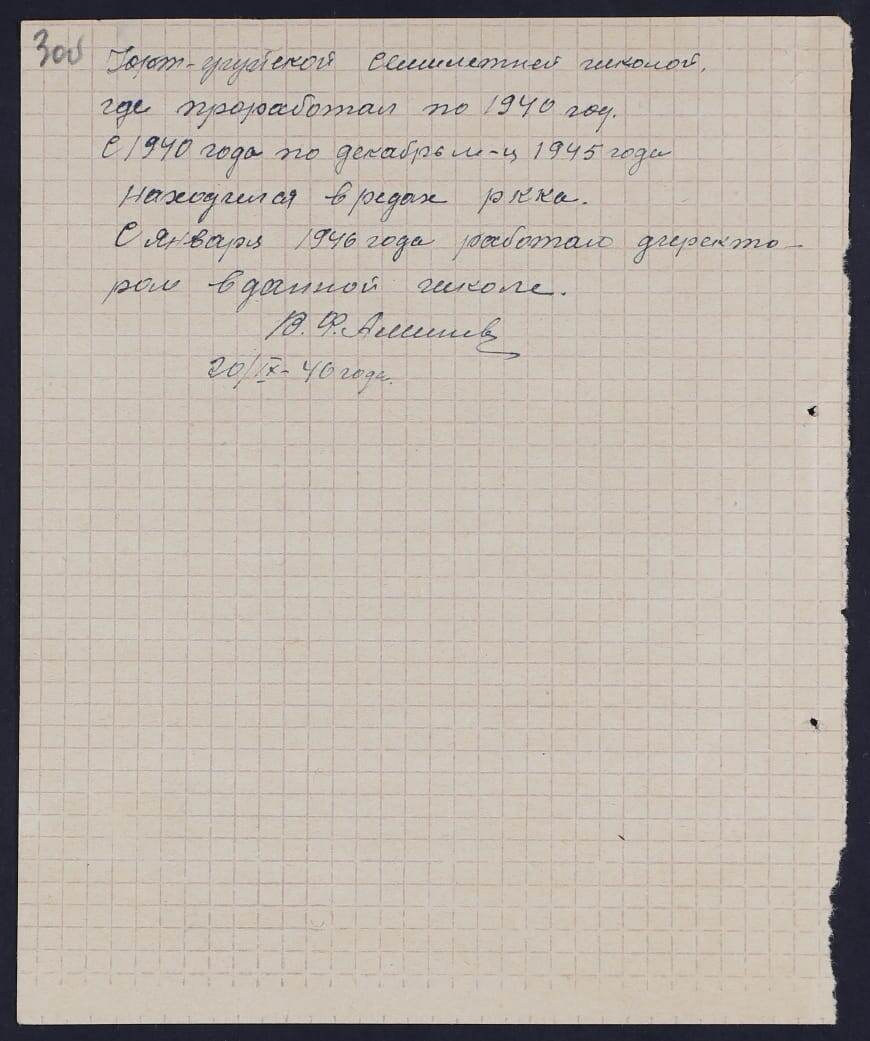 300
семилетней школой,
где проработал по 1940 год.
С 1940 года по декабрь м-ц 1945 года
находился в редах ркка.
С января 1946 года работаю директо-
ром в данной школе.
В. Ф.
20/IX-46 года.